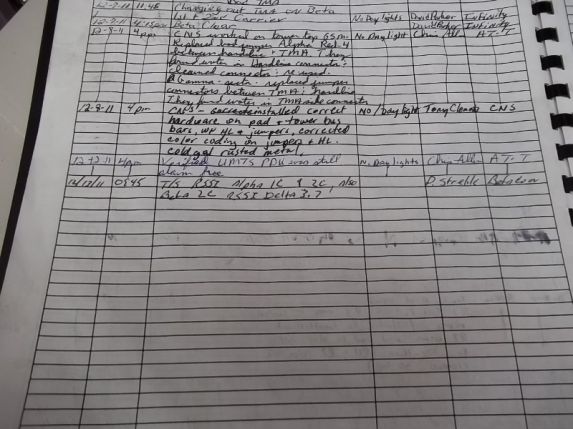 12-7-11 11:45 Changing out TMA on Beta
1st + 2nd Carrier No Daylights Intivity
12-7-11 Beta Clear Intivity
12-8-11 4pm CNS worked on tower top GSM No Daylight Chris All AT&T
Replaced bad jumper Alpha Ret-4
between hardline + TMA. They
found water in Hardline connector;
cleaned connector; re used.
Gamma replaced jumper
connectors between TMA; hardline
They found water in TMA side connector
12-8-11 4pm CNS installed correct No/Daylight Tony CNS
hardware on pad + tower bus
bars, WP HL + jumpers, corrected
color coding on jumper + HL.
cold gal rusted metal.
12-12-11 4pm Verified UMTS PDU No Daylights Chris All AT&T
alarm free
12/13/11 0845 T/S RSSI Alpha 1C & 2C, also D. Strehle
Beta 2C RSSI Delta 3.7